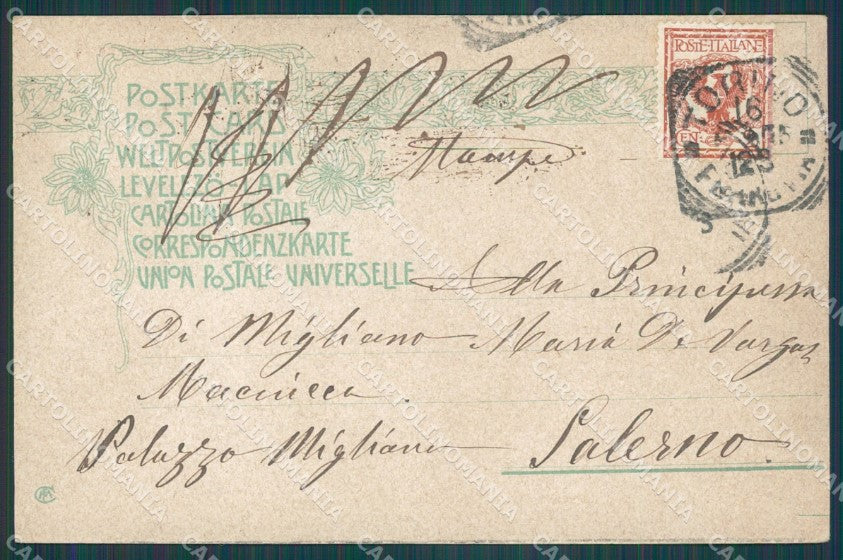 POSTKARTE
POST CARD
WELTPOSTVEREIN
LEVELEZŐ-LAP
CARTOLINA POSTALE
CORRESPONDENZKARTE
UNION POSTALE UNIVERSELLE
POSTE·ITALIANE
CEN. 2
TORINO
16
FERROVIA
Stampe
Alla Principessa
Di Migliano Maria De Vargas
Macciucca
Palazzo Migliano Salerno.
CARTOLINOMANIA